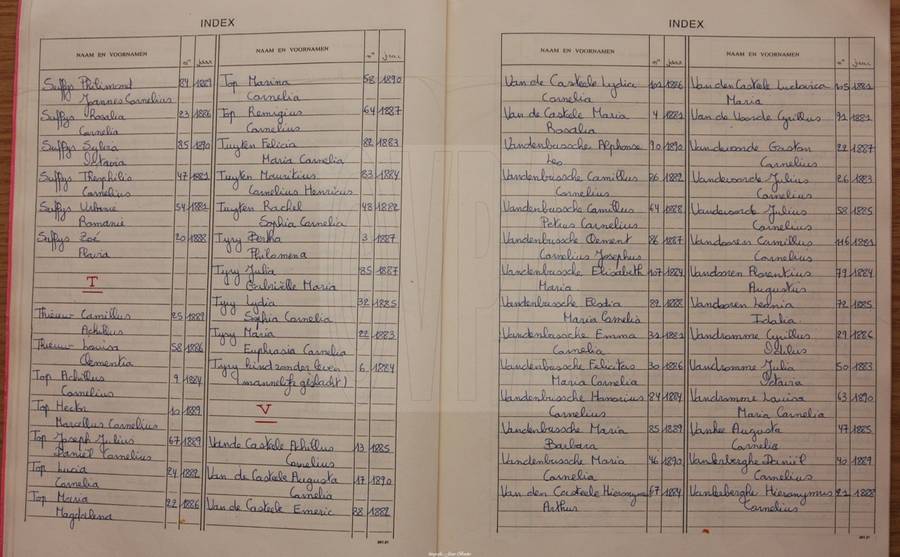 INDEX
NAAM EN VOORNAMEN n° jaar
Suffys Philimont 84 1889
Joannes Cornelius
Suffys Rosalia 23 1886
Cornelia
Suffys Sylvia 85 1890
Octavia
Suffys Theophilis 47 1881
Cornelius
Suffys Urbanie 54 1881
Romanie
Suffys Zoë 20 1888
Flavia
T
Thieuw Camillus 25 1889
Achillus
Thieuw Louisa 58 1886
Clementia
Top Achillus 9 1884
Cornelius
Top Hector 10 1889
Marcellus Cornelius
Top Joseph Julius 67 1889
Daniël Cornelius
Top Lucia 24 1882
Cornelia
Top Maria 22 1886
Magdalena
NAAM EN VOORNAMEN n° jaar
Top Marina 58 1890
Cornelia
Top Remigius 64 1887
Cornelius
Tuyten Felicia 82 1883
Maria Cornelia
Tuyten Mauritius 83 1884
Cornelius Henricus
Tuyten Rachel 48 1882
Sophia Cornelia
Tyry Bertha 3 1887
Philomena
Tyry Julia 85 1887
Gabriëlle Maria
Tyry Lydia 32 1885
Sophia Cornelia
Tyry Maria 22 1883
Euphrasia Cornelia
Tyry kind zonder leven 6 1884
(mannelijk geslacht)
V
Van de Casteele Achillus 13 1885
Cornelius
Van de Casteele Augusta 17 1890
Cornelia
Van de Casteele Emeric 88 1882
INDEX
NAAM EN VOORNAMEN n° jaar
Van de Casteele Lydia 102 1886
Cornelia
Van de Casteele Maria 4 1881
Rosalia
Vandenbussche Alphonse 90 1890
Leo
Vandenbussche Camillus 26 1882
Cornelius
Vandenbussche Camillus 64 1888
Petrus Cornelius
Vandenbussche Clement 86 1887
Cornelius Josephus
Vandenbussche Elisabeth 107 1884
Maria
Vandenbussche Elodia 89 1888
Maria Cornelia
Vandenbussche Emma 32 1881
Cornelia
Vandenbussche Felicitas 30 1886
Maria Cornelia
Vandenbussche Honorius 24 1884
Cornelius
Vandenbussche Maria 85 1889
Barbara
Vandenbussche Maria 46 1890
Cornelia
Van den Casteele Hieronymus 67 1884
Arthur
NAAM EN VOORNAMEN n° jaar
Van den Castele Ludovica 105 1881
Maria
Van de Voorde Cyrillus 91 1881
Vandevoorde Gaston 22 1887
Cornelius
Vandevoorde Julius 26 1883
Cornelius
Vandevoorde Julius 58 1885
Cornelius
Vandooren Camillus 116 1881
Cornelius
Vandooren Florentius 79 1884
Augustus
Vandooren Leonia 72 1885
Idalia
Vandromme Cyrillus 29 1886
Odilus
Vandromme Julia 50 1883
Octavia
Vandromme Louisa 63 1890
Maria Cornelia
Vanhee Augusta 47 1885
Cornelia
Vanlerberghe Daniël 40 1889
Cornelius
Vanlerberghe Hieronymus 21 1888
Cornelius